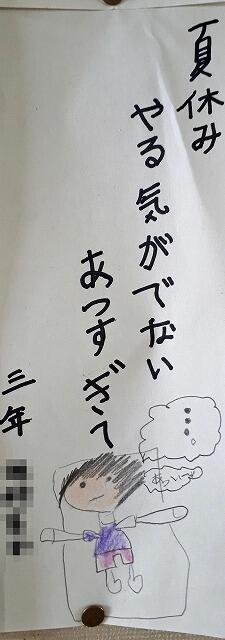 夏休み
やる気がでない
あつすぎて
三年